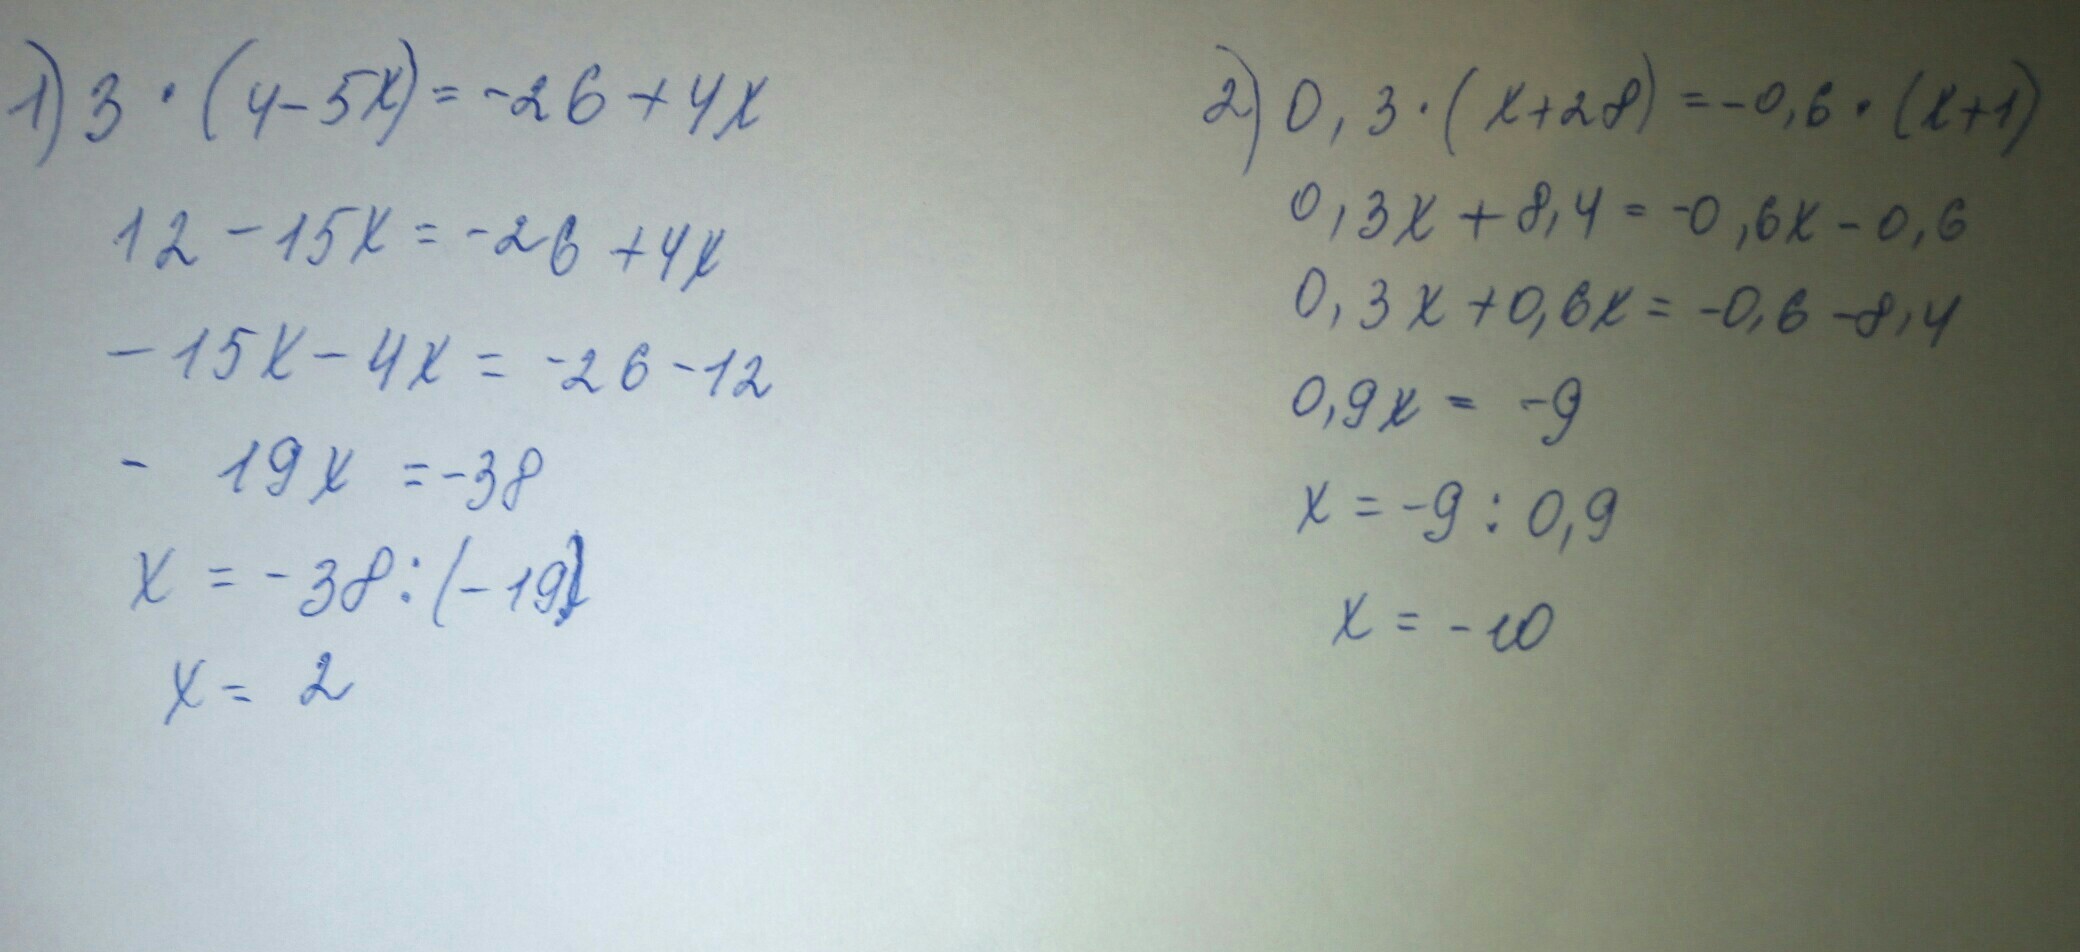 1) 3 · (4-5x) = -26 + 4x
12 - 15x = -26 + 4x
-15x - 4x = -26 - 12
- 19x = -38
x = -38 : (-19)
x = 2
2) 0,3 · (x+28) = -0,6 · (x+1)
0,3x + 8,4 = -0,6x - 0,6
0,3x + 0,6x = -0,6 - 8,4
0,9x = -9
x = -9 : 0,9
x = -10